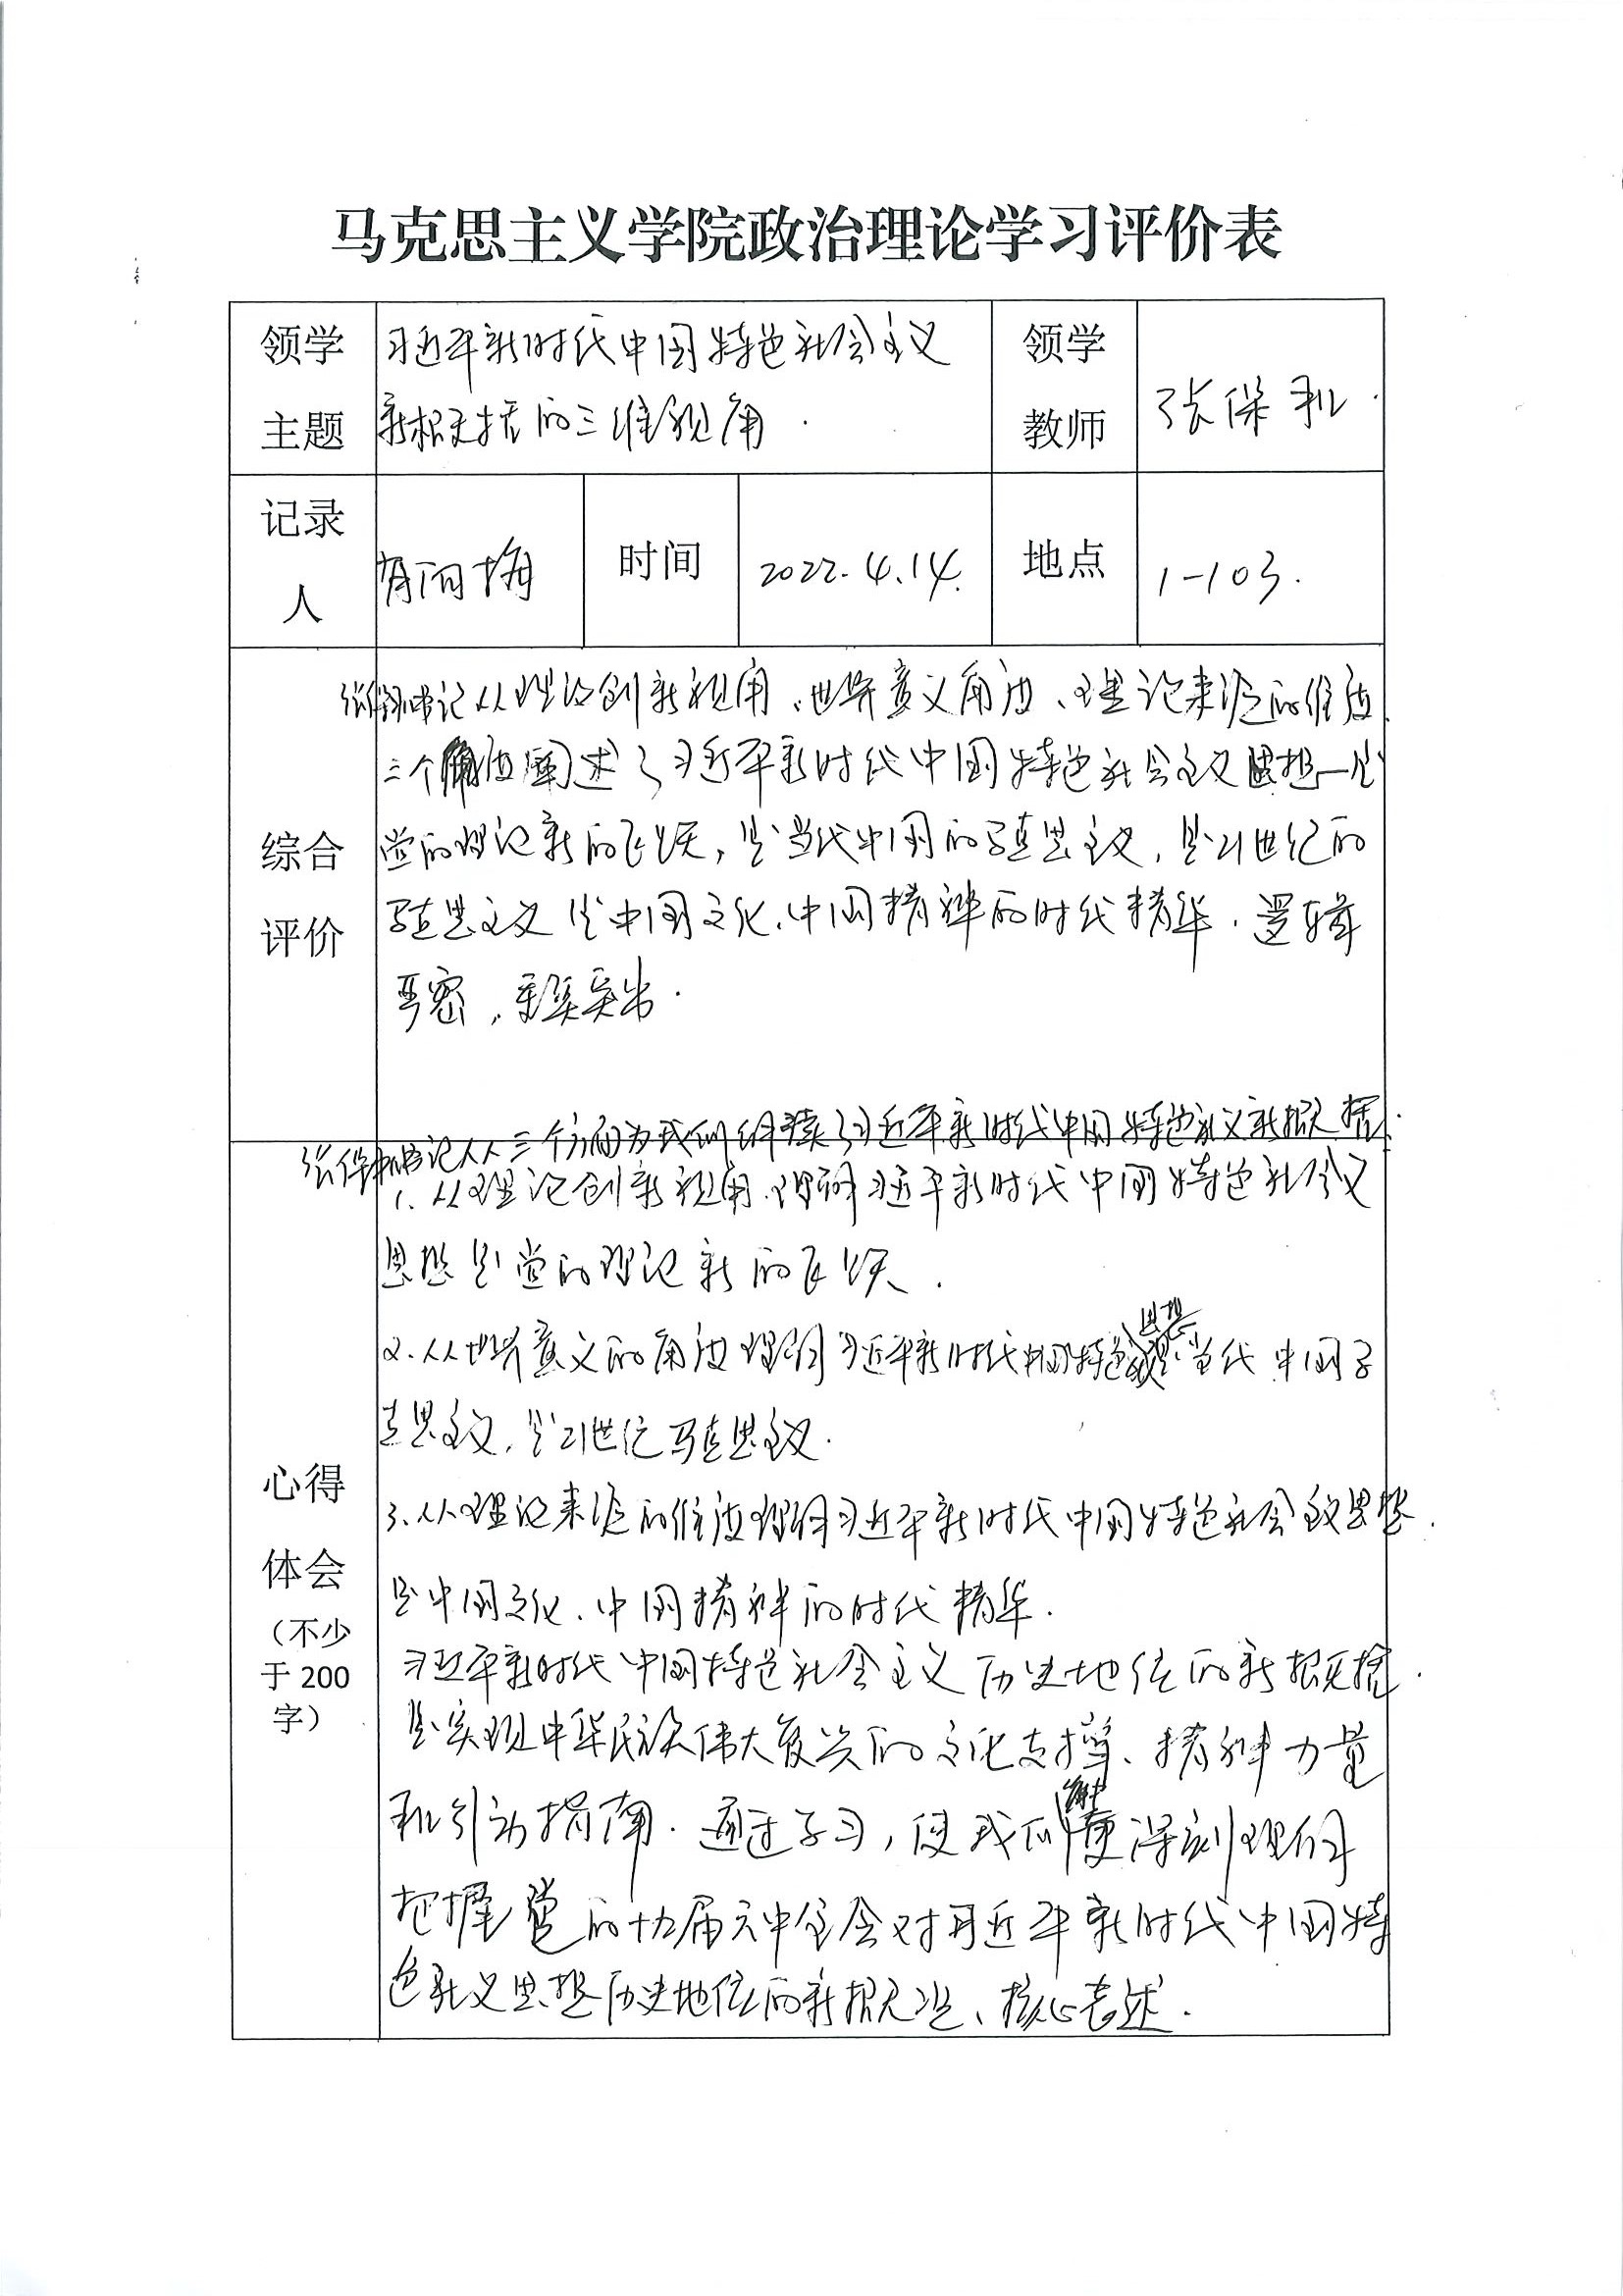 马克思主义学院政治理论学习评价表
领学
主题
习近平新时代中国特色社会主义
新概括的三维视角.
领学
教师
张保和.
记录
人
时间
2022.4.14.
地点
1-103.
综合
评价
书记从理论创新视角、世界意义角度、理论来源的维度
三个阐述了习近平新时代中国特色社会主义思想是
党的理论新的飞跃,是当代中国的马克思主义,是21世纪的
马克思主义是中国文化、中国精神的时代精华.逻辑
严密,突出.
书记从三个方面为我们解读了习近平新时代中国特色社义新概括.
1.从理论创新视角理解习近平新时代中国特色社会义
思想是党的理论新的飞跃.
2.从世界意义的角度理解习近平新时代中国特色思想是当代中国马
克思主义,是21世纪马克思主义.
3.从理论来源的维度理解习近平新时代中国特色社会主义思想.
是中国文化、中国精神的时代精华.
心得
体会
(不少
于200
字)
习近平新时代中国特色社会主义历史地位的新概括.
是实现中华民族伟大复兴的文化支撑、精神力量
和行动指南.通过学习,使我们更深刻理解
把握党的十九届六中全会对习近平新时代中国特
色社义思想历史地位的新概况、核心表述.